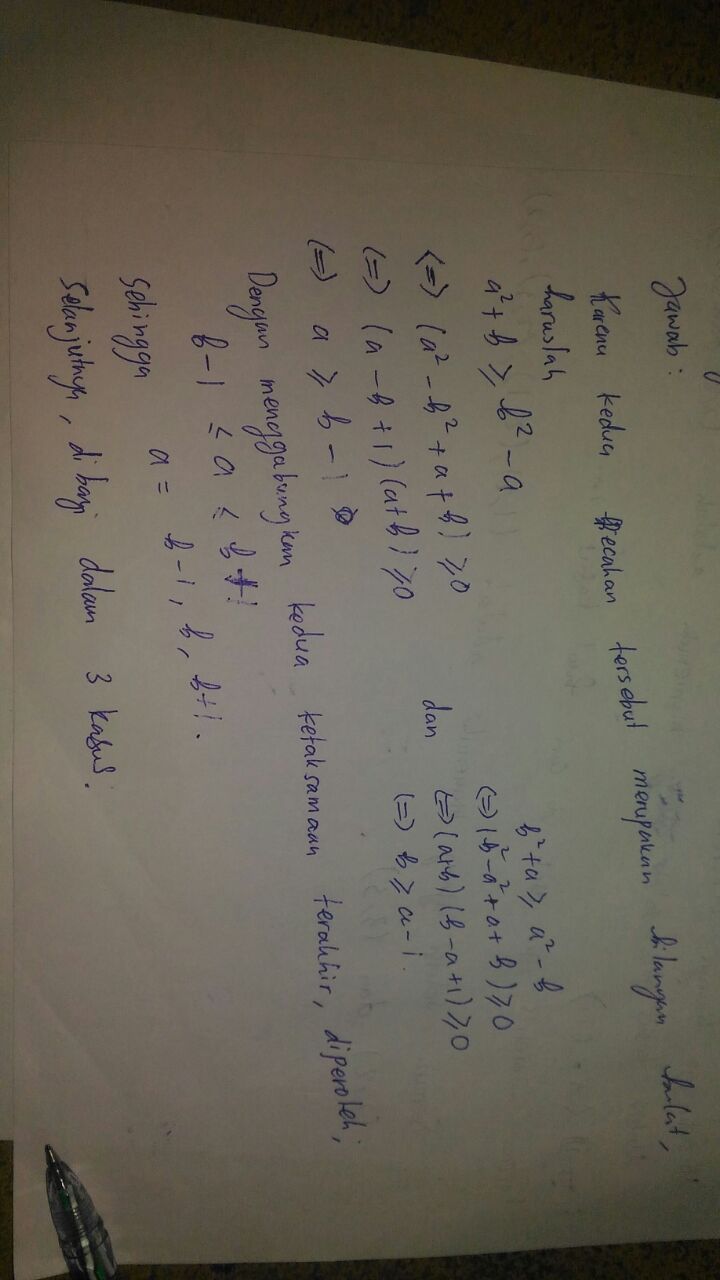 Jawab:
Karena kedua pecahan tersebut merupakan bilangan bulat,
haruslah
a² + b ≥ b² - a
<=> (a² - b² + a + b) ≥ 0
<=> (a - b + 1)(a+b) ≥ 0
<=> a ≥ b - 1
dan
b² + a ≥ a² - b
<=> (b² - a² + a + b) ≥ 0
<=> (a+b)(b-a+1) ≥ 0
<=> b ≥ a - 1.
Dengan menggabungkan kedua ketaksamaan terakhir, diperoleh;
b-1 ≤ a ≤ b+1
Sehingga a = b-1, b, b+1.
Selanjutnya, dibagi dalam 3 kasus: